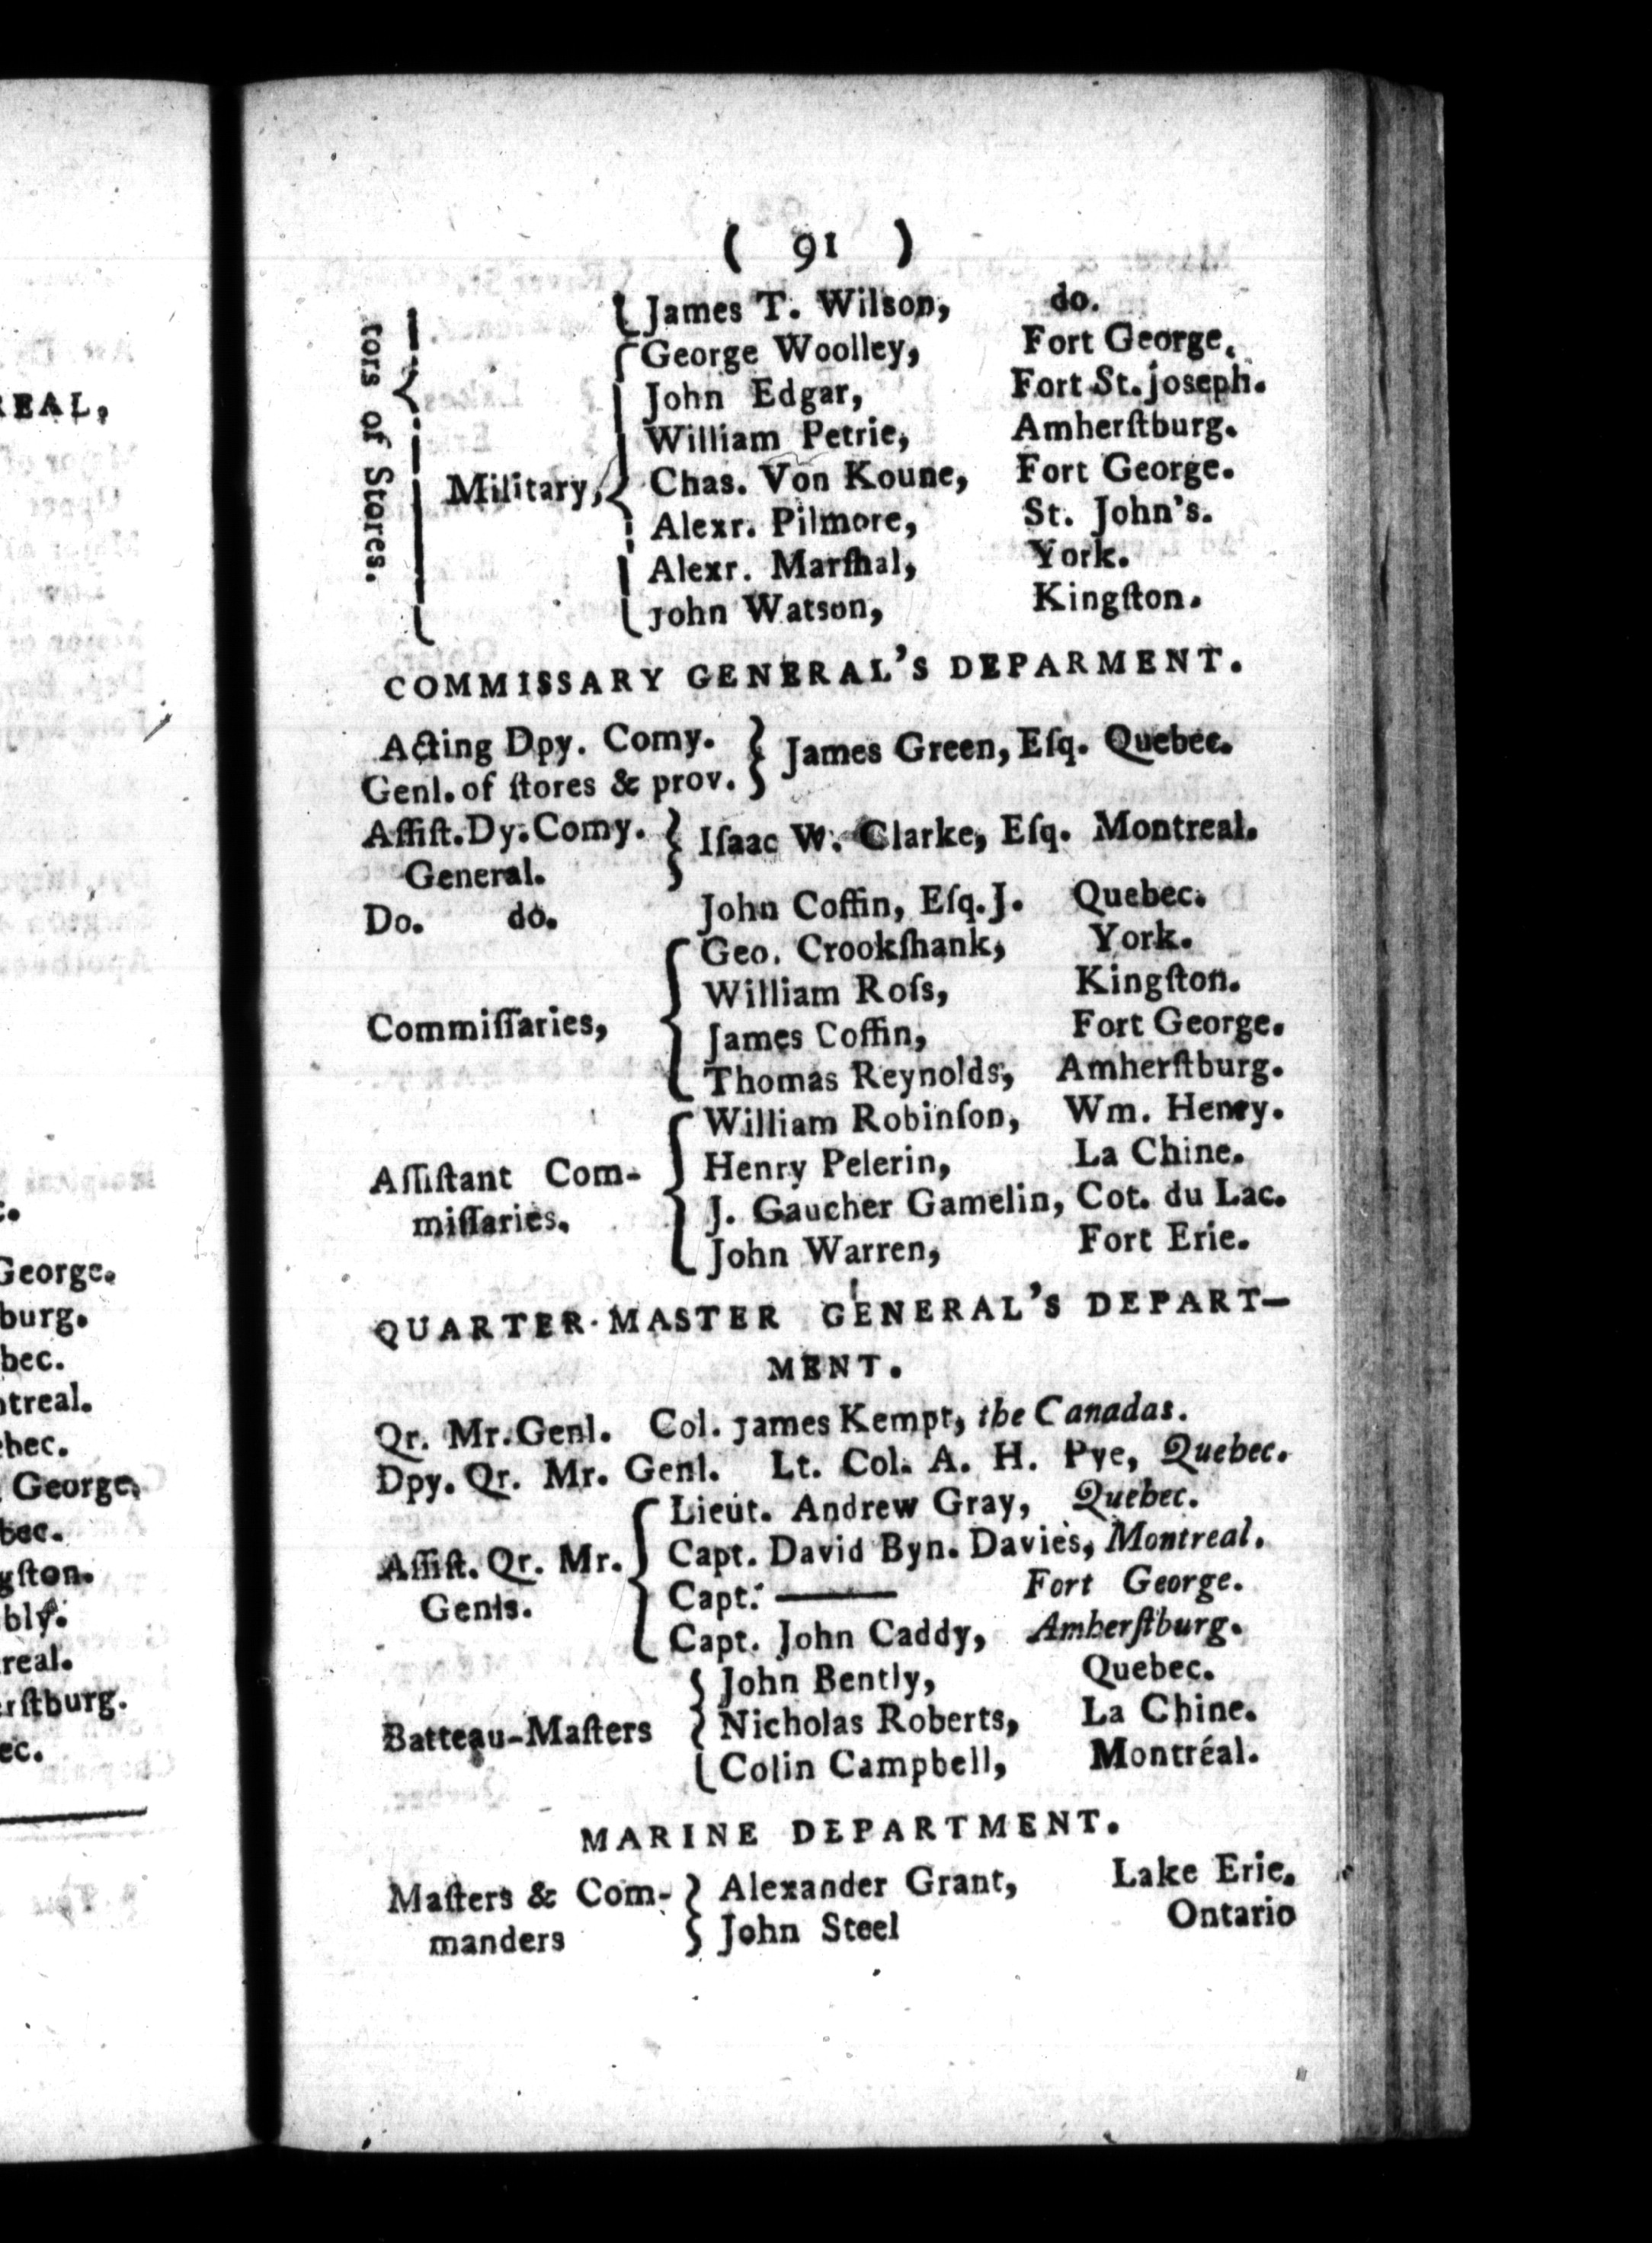 REAL,
c.
George.
burg.
bec.
ntreal.
ebec.
George.
bec.
gſton.
bly.
real.
erſtburg.
ec.
( 91 )
tors of Stores.
James T. Wilson, do.
George Woolley, Fort George.
John Edgar, Fort St. joseph.
William Petrie, Amherſtburg.
Military, Chas. Von Koune, Fort George.
Alexr. Pilmore, St. John's.
Alexr. Marſhal, York.
John Watson, Kingſton.
COMMISSARY GENERAL'S DEPARMENT.
Acting Dpy. Comy.
Genl. of ſtores & prov. } James Green, Eſq. Quebec.
Aſſiſt. Dy. Comy.
General. } Iſaac W. Clarke, Eſq. Montreal.
Do. do. John Coffin, Eſq. J. Quebec.
Geo. Crookſhank, York.
William Roſs, Kingſton.
Commiſſaries, James Coffin, Fort George.
Thomas Reynolds, Amherſtburg.
William Robinſon, Wm. Henry.
Aſſiſtant Com- Henry Pelerin, La Chine.
miſſaries. J. Gaucher Gamelin, Cot. du Lac.
John Warren, Fort Erie.
QUARTER-MASTER GENERAL'S DEPART-
MENT.
Qr. Mr. Genl. Col. James Kempt, the Canadas.
Dpy. Qr. Mr. Genl. Lt. Col. A. H. Pye, Quebec.
Lieut. Andrew Gray, Quebec.
Aſſiſt. Qr. Mr. Capt. David Byn. Davies, Montreal.
Genls. Capt. ——— Fort George.
Capt. John Caddy, Amherſtburg.
John Bently, Quebec.
Batteau-Maſters Nicholas Roberts, La Chine.
Colin Campbell, Montréal.
MARINE DEPARTMENT.
Maſters & Com- Alexander Grant, Lake Erie.
manders John Steel Ontario